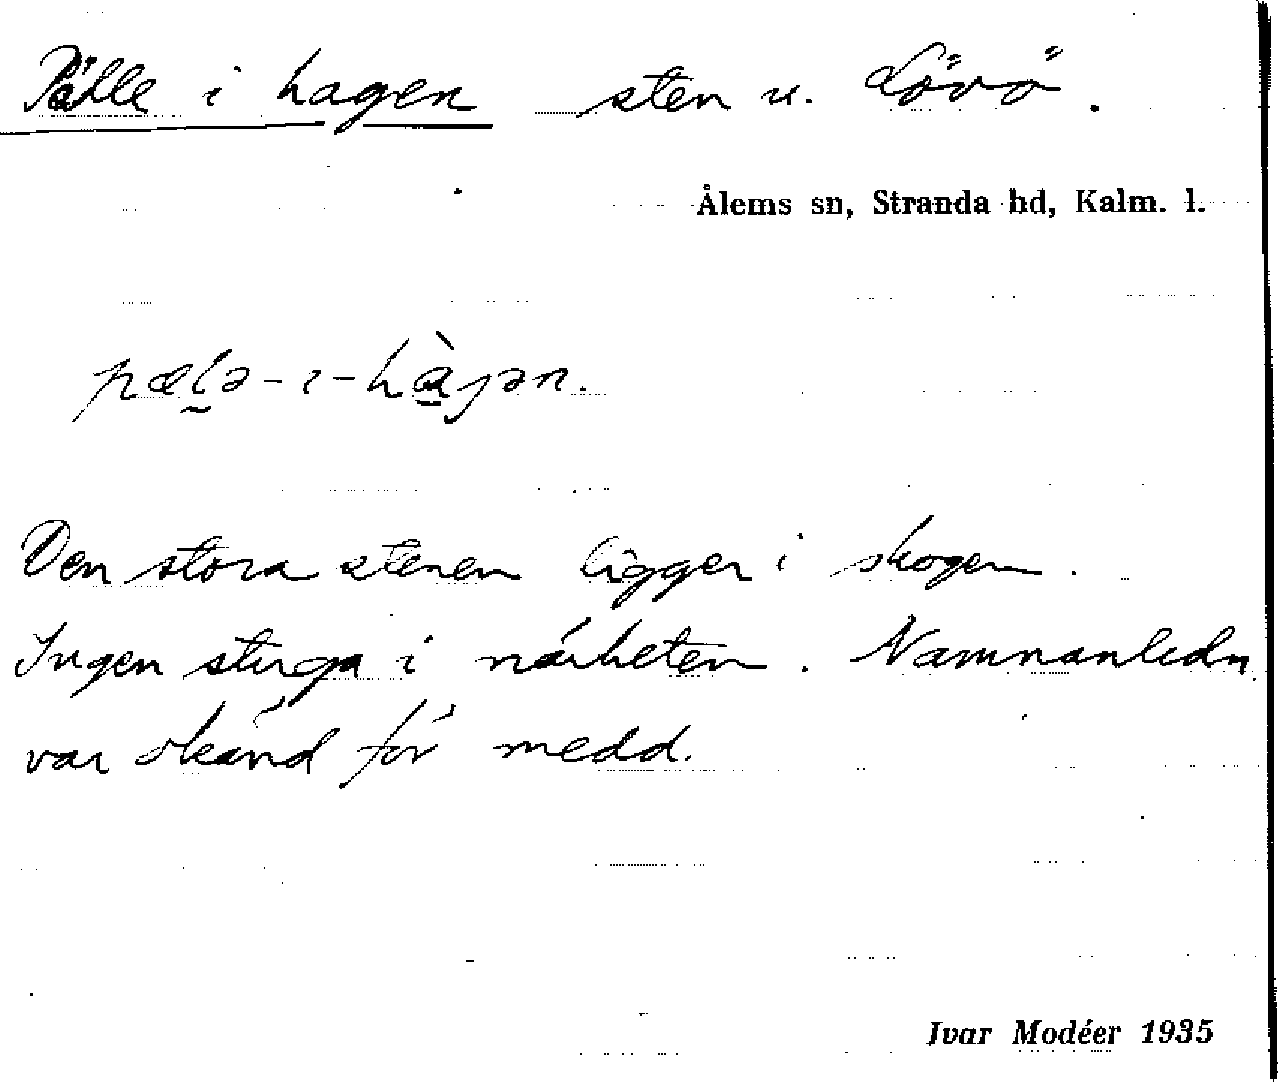 Pälle i hagen sten u. Lövö.
Ålems sn, Stranda hd, Kalm. l.
pæl̰ə-ı-hàjən.
Den stora stenen ligger i skogen.
Ingen stuga i närheten. Namnanledn.
var okänd för medd.
Ivar Modéer 1935